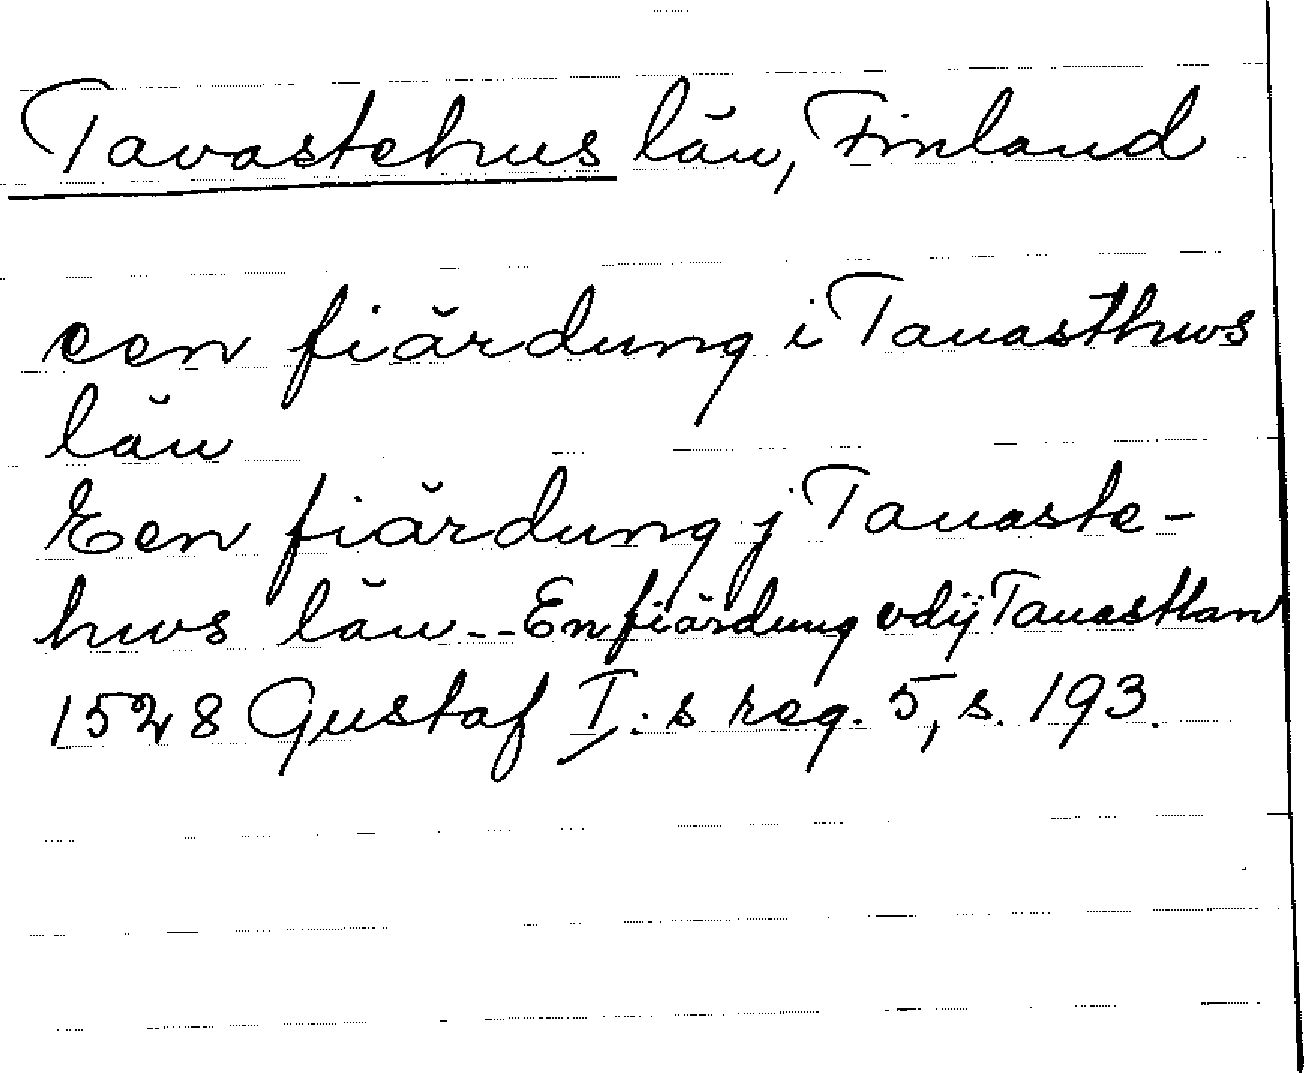 Tavastehus län, Finland
een fiärdung i Tauasthws
län
Een fiärdung j Tauaste-
hws län -- En fiärdung vdij Tauastlan
1528 Gustaf I:s reg. 5, s. 193.